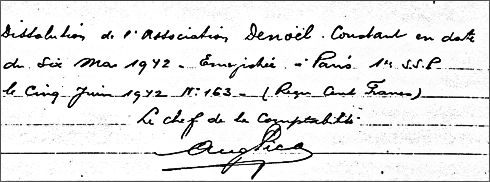 Dissolution de l'Association Denoël. Constant en date
du six Mai 1942 - Enregistrée à Paris 1er S.S.P.
le Cinq Juin 1942 N° 163 - (Reçu Cent Francs)
Le chef de la Comptabilité.